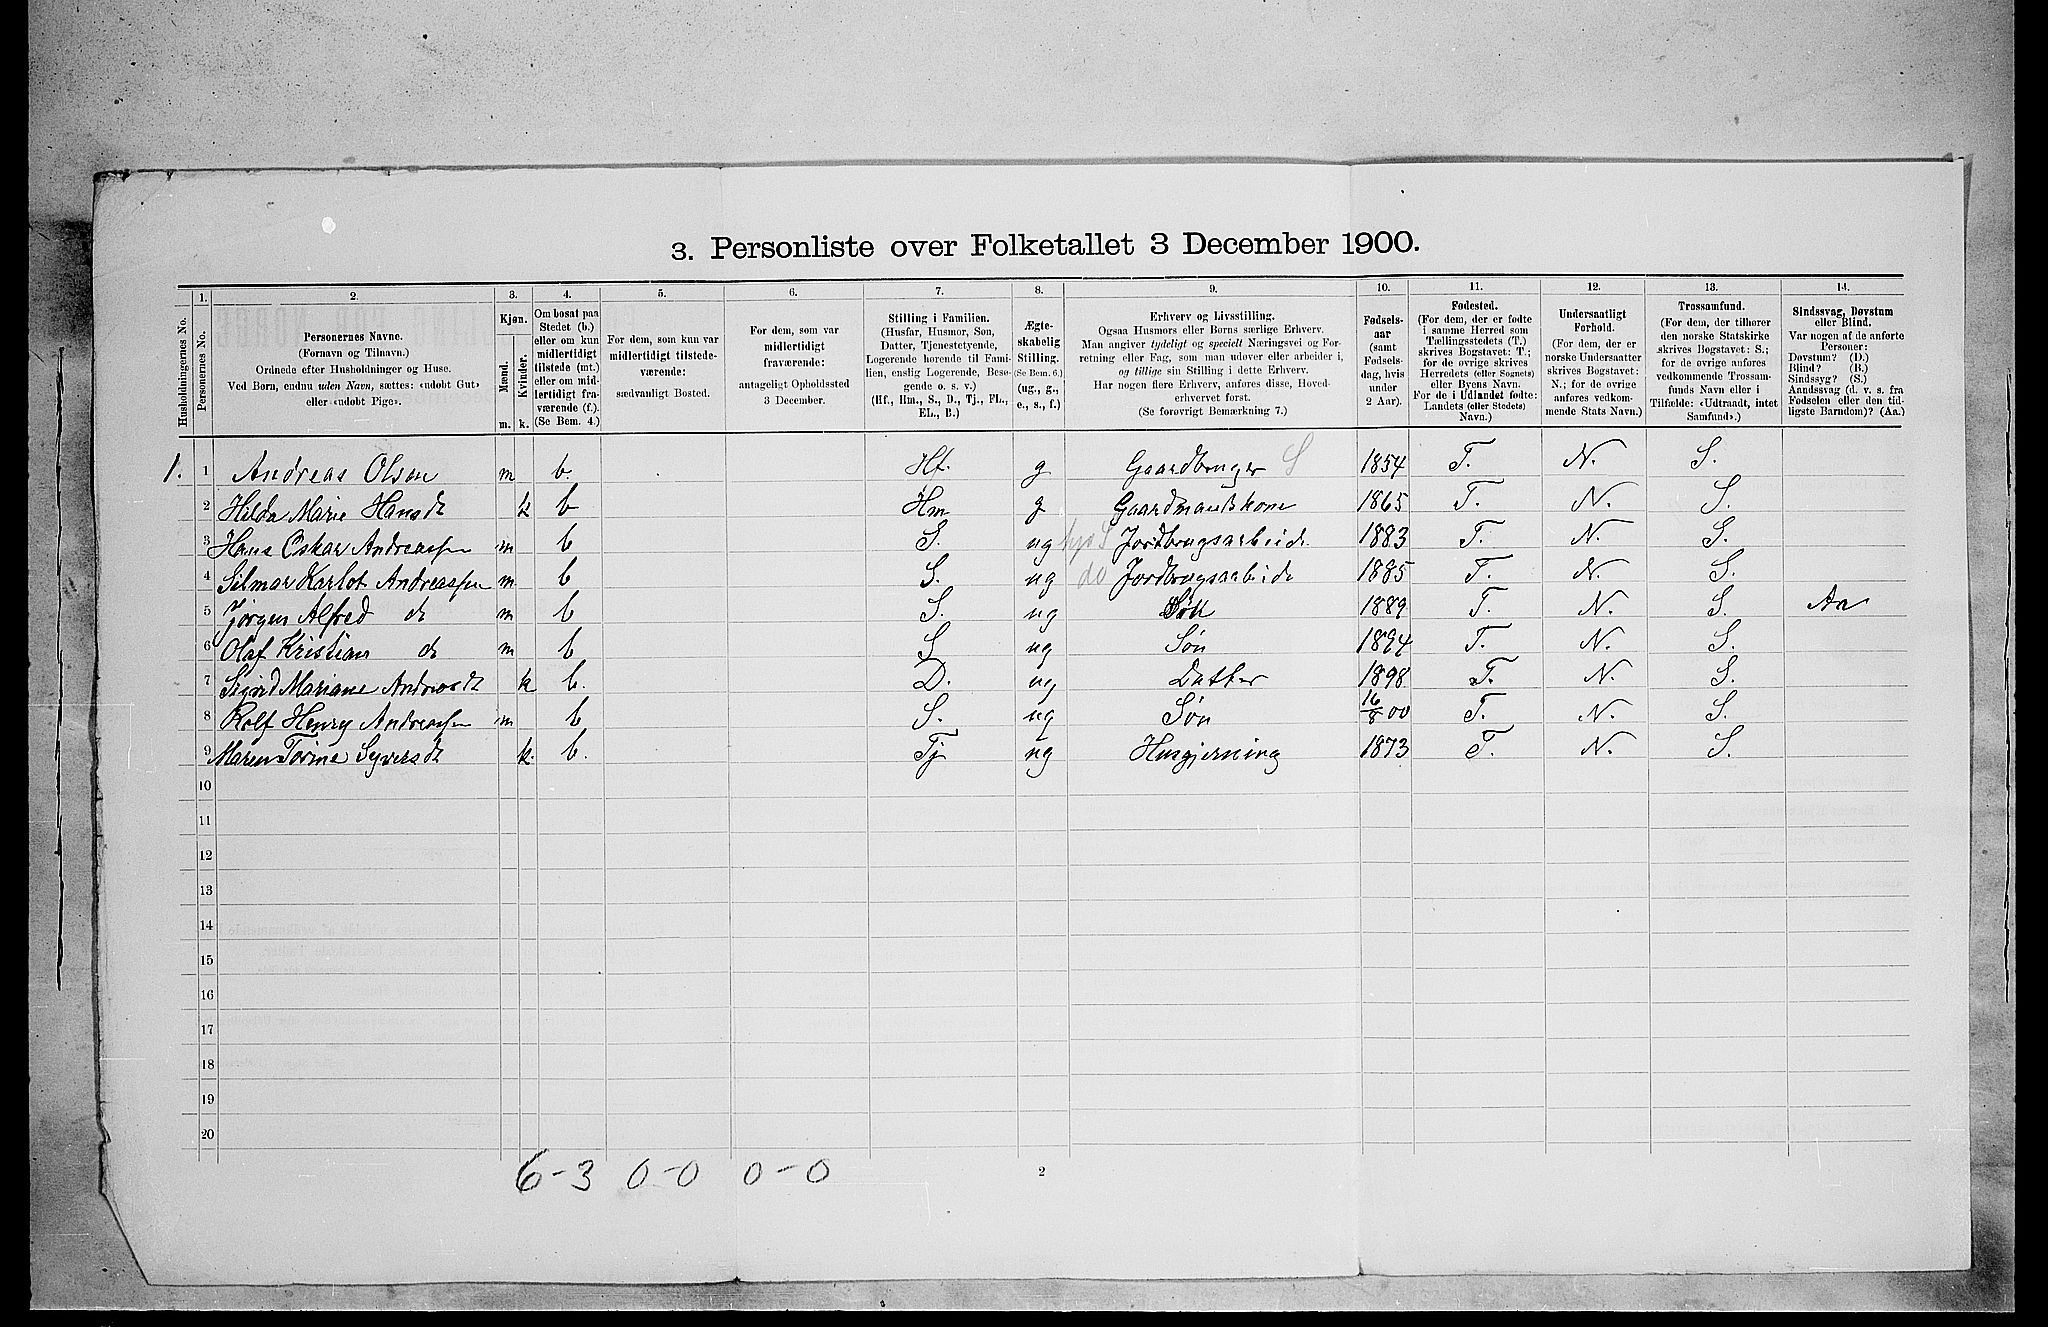 3. Personliste over Folketallet 3 December 1900.
Husholdningernes No.
1.
Personernes No.
2.
Personernes Navne.
(Fornavn og Tilnavn.)
Ordnede efter Husholdninger og Huse.
Ved Børn, endnu uden Navn, sættes: «udøbt Gut»
eller «udøbt Pige».
3.
Kjøn.
Mænd.
Kvinder.
m. k.
4.
Om bosat paa
Stedet (b.)
eller om kun
midlertidigt
tilstede (mt.)
eller om mid-
lertidigt fra-
værende (f.).
(Se Bem. 4.)
5.
For dem, som kun var
midlertidigt tilstede-
værende:
sædvanligt Bosted.
6.
For dem, som var
midlertidigt
fraværende:
antageligt Opholdssted
3 December.
7.
Stilling i Familien.
(Husfar, Husmor, Søn,
Datter, Tjenestetyende,
Logerende hørende til Fami-
lien, enslig Logerende, Besø-
gende o. s. v.)
(Hf., Hm., S., D., Tj., FL.,
EL., B.)
8.
Ægte-
skabelig
Stilling.
(Se Bem. 6.)
(ug., g.,
e., s., f.)
9.
Erhverv og Livsstilling.
Ogsaa Husmors eller Børns særlige Erhverv.
Man angiver tydeligt og specielt Næringsvei og For-
retning eller Fag, som man udøver eller arbeider i,
og tillige sin Stilling i dette Erhverv.
Har nogen flere Erhverv, anføres disse, Hoved-
erhvervet først.
(Se forøvrigt Bemærkning 7.)
10.
Fødsels-
aar
(samt
Fødsels-
dag, hvis
under
2 Aar).
11.
Fødested.
(For dem, der er fødte
i samme Herred som
Tællingsstedets (T.)
skrives Bogstavet: T.;
for de øvrige skrives
Herredets (eller Sognets)
eller Byens Navn.
For de i Udlandet fødte:
Landets (eller Stedets)
Navn.)
12.
Undersaatligt
Forhold.
(For dem, der er
norske Undersaatter
skrives Bogstavet:
N.; for de øvrige
anføres vedkom-
mende Stats Navn.)
13.
Trossamfund.
(For dem, der tilhører
den norske Statskirke
skrives Bogstavet: S.;
for de øvrige anføres
vedkommende Trossam-
funds Navn eller i
Tilfælde: «Udtraadt, intet
Samfund».)
14.
Sindssvag, Døvstum
eller Blind.
Var nogen af de anførte
Personer:
Døvstum? (D.)
Blind? (B.)
Sindssyg? (S.)
Aandssvag (d. v. s. fra
Fødselen eller den tid-
ligste Barndom)? (Aa.)
1. 1 Andreas Olsen m b. Hf. g Gaardbruger S 1854 T. N. S.
2 Hilda Marie Hansdt k b Hm g Gaardmandskone 1865 T. N. S.
3 Hans Oskar Andreassen m b S. ug Jordbrugsarbeide 1883 T. N. S.
4 Karlot Andreassen m b S. ug do Jordbrugsarbeide 1885 T. N. S.
5 Jørgen Alfred do m b S. ug Søn 1889 T. N. S. Aa
6 Olaf Kristian do m b S ug Søn 1894 T. N. S.
7 Sigrid Mariane Andreasdt k b. D. ug Datter 1898 T. N. S.
8 Rolf Henry Andreassen m b S. ug Søn 16/8 00 T. N. S.
9 Maren Torine Syversdt k. b. Tj ug Husgjerning 1873 T. N. S.
10
11
12
13
14
15
16
17
18
19
20
6-3 0-0 0-0
2